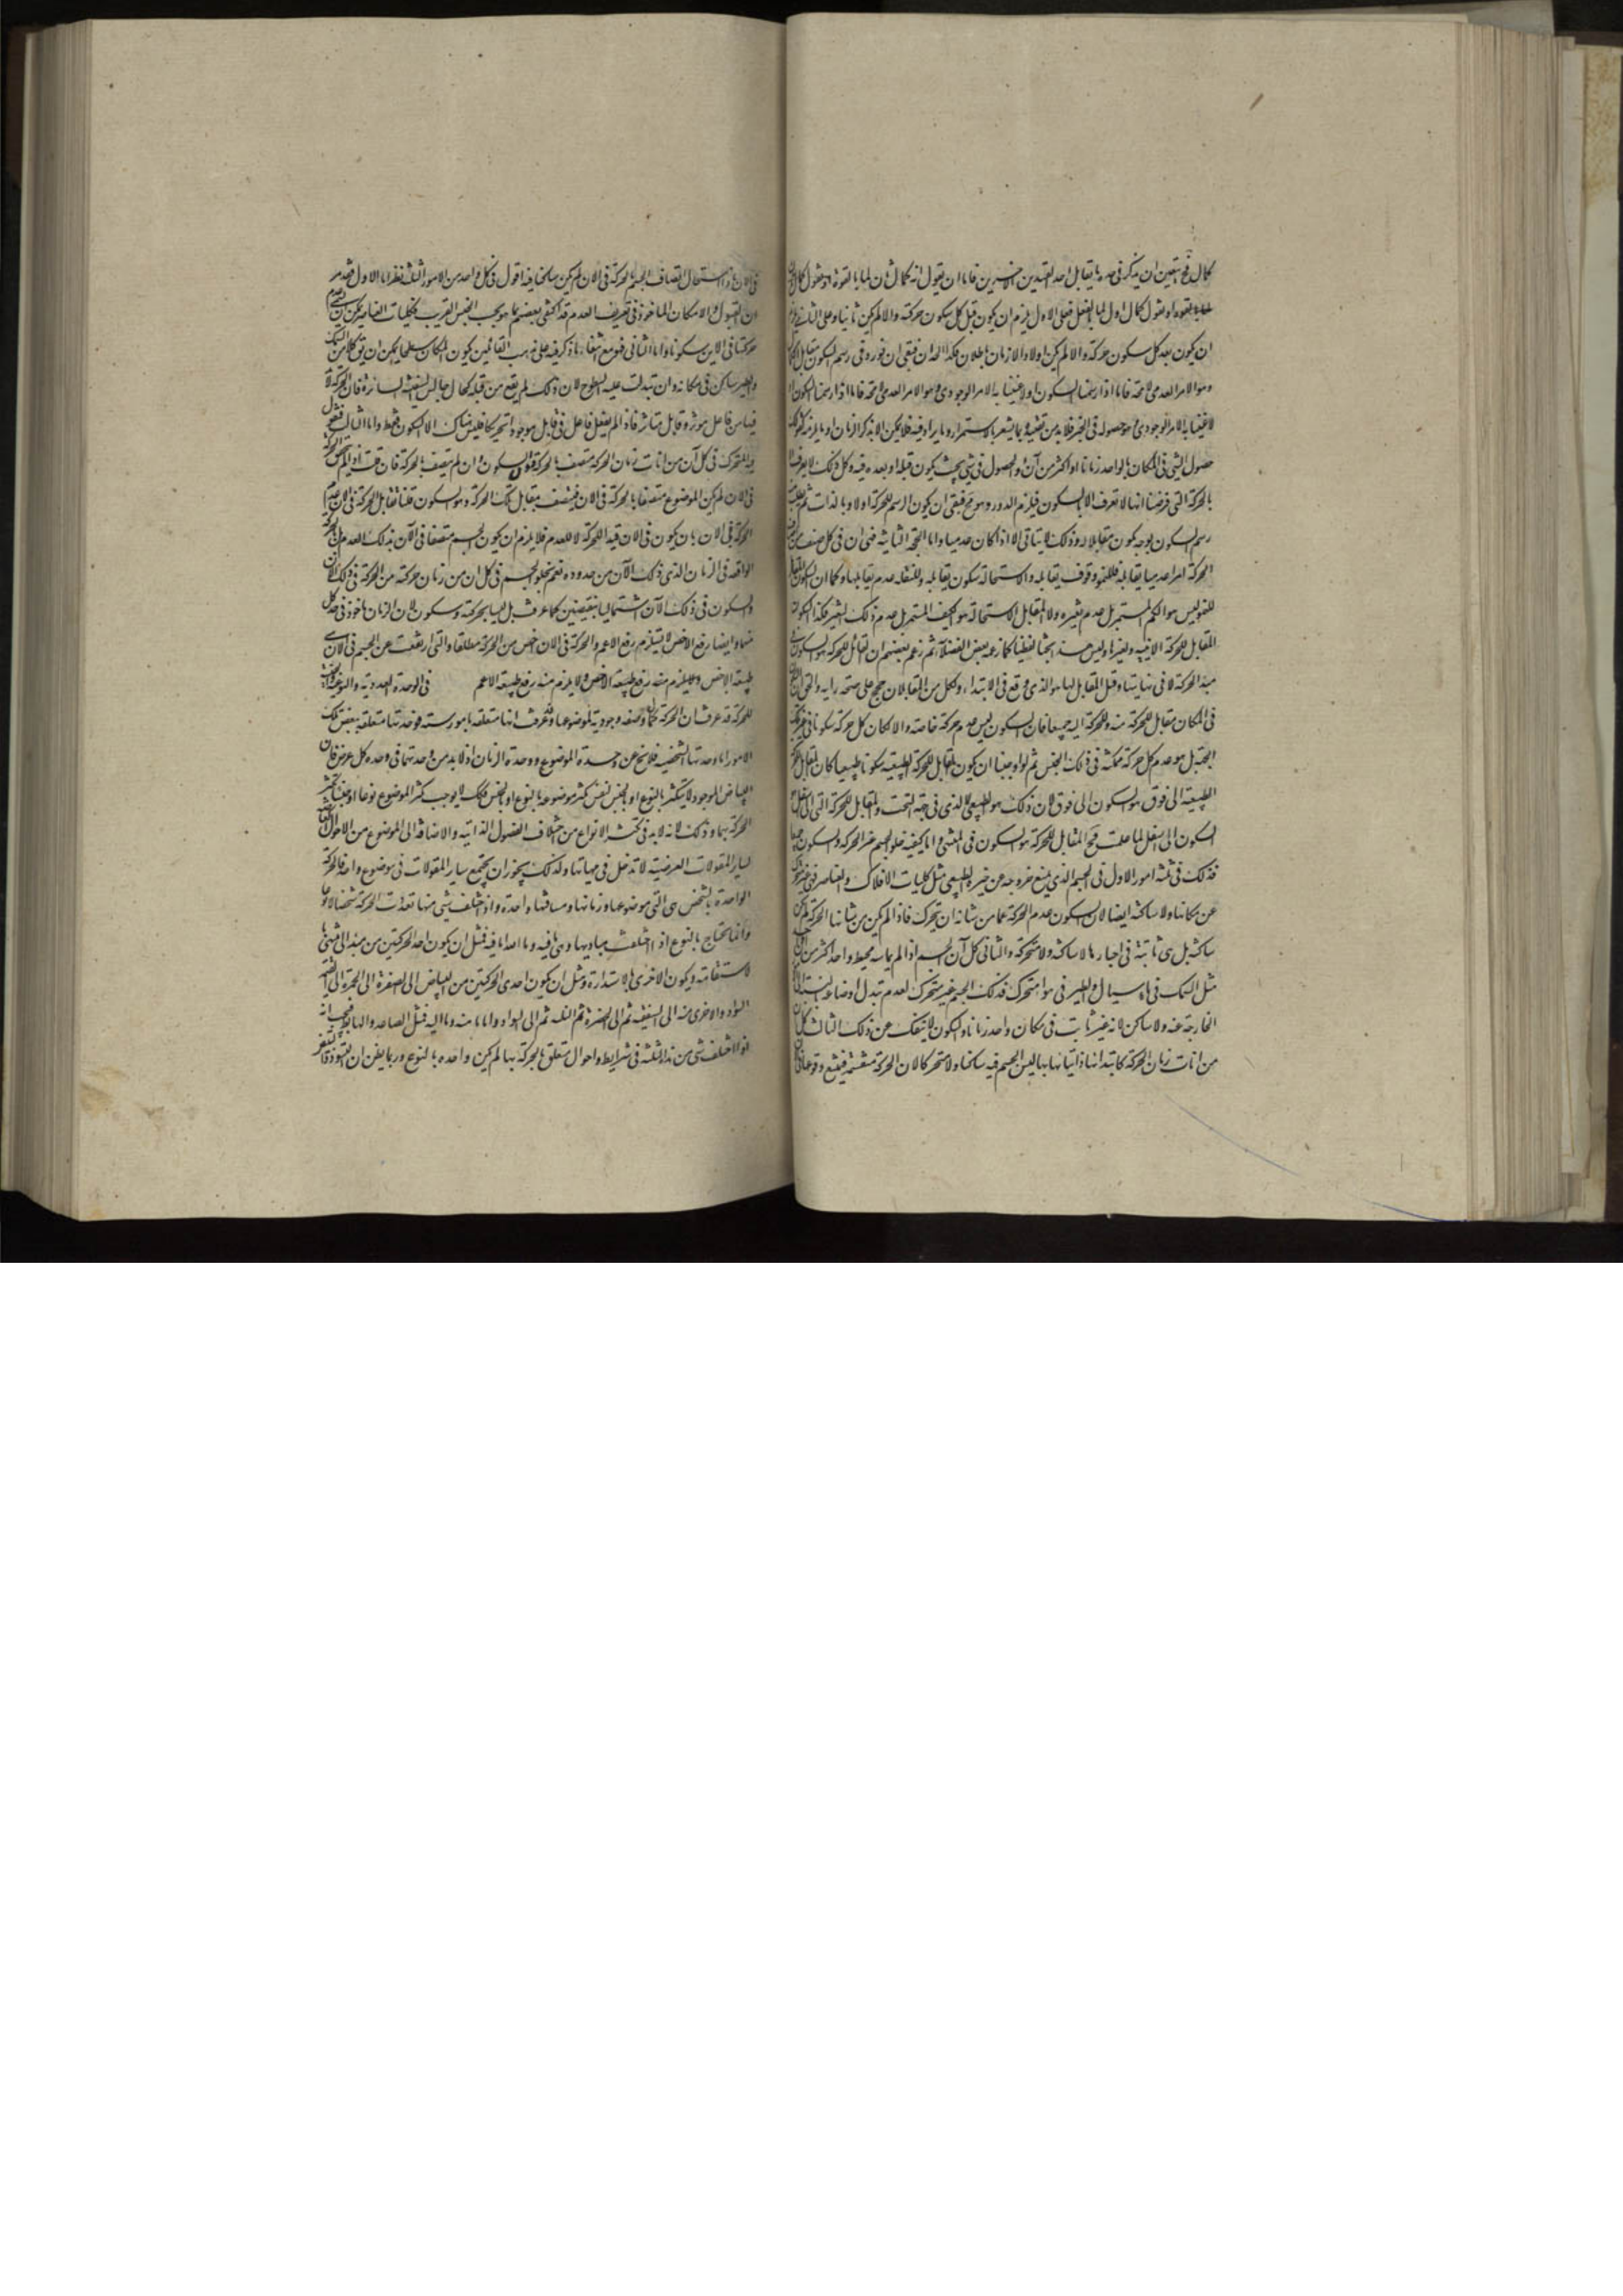 كمال فح يتعين ان يذكر في حده ما يقابل احد القيدين الاخيرين فاما ان يقول انه كمال ثان لما بالقوة او يقول كمال
بالقوة او يقول كمال اول لما بالفعل فعلى الاول يلزم ان يكون قبل كل سكون حركة والا لم يكن ثانيا وعلى الثاني يلزم
ان يكون بعد كل سكون حركة والا لم يكن اولا واللازمان باطلان فكذا الحدان فبقى ان نورد في رسم السكون مقابل
وهو الامر العدمي لا محة فانا اذا رسمنا السكون اولا وعنينا به الامر الوجودي وهو الامر العدمي لا محة فانا اذا رسمنا السكون
لا عنينا به الامر الوجودي وهو حصوله في الحيز فلا بد من تقييده بما يشعر باستمراره وما يرادفه فلا يمكن الا بذكر الزمان او ما يلزمه كقولك
حصول الشي في المكان الواحد زمانا او اكثر من آن والحصول في شي بحيث يكون قبله او بعده فيه وكل ذلك لا يعرف الا
بالحركة التي فرضنا انها لا تعرف الا بالسكون فيلزم الدور وهو مح فبقى ان يكون الرسم للحركة اولا وبالذات ثم يطلب
رسم السكون بوجه يكون مقابلا له وذلك لا يتاتى الا اذا كان عدميا واما الحجة الثانية فهي ان في كل صنف من
الحركة امرا عدميا يقابله فللنمو وقوف يقابله وللاستحالة سكون يقابله وللنقلة عدم يقابلها وكما ان السكون المقابل
للنمو ليس هو الكم المستمر بل عدم تغيره ولا المقابل للاستحالة هو الكيف المستمر بل عدم ذلك التغير فكذا السكون
المقابل للحركة الاينية ولغيرها وليس هذا بحثا لفظيا كما زعمه بعض الفضلاء ثم زعم بعضهم ان المقابل للحركة هو السكون في
مبدا الحركة لا في نهايتها وقيل المقابل لها هو الذي وقع في الابتداء ولكل من القابلان حجج على صحة رايه والحق ان السكون
في المكان مقابل للحركة منه وللحركة اليه جميعا فان السكون ليس عدم حركة خاصة والا لكان كل حركة سكونا في غيرها
الجنس بل هو عدم كل حركة ممكنة في ذلك الجنس ثم لو اوجبنا ان يكون المقابل للحركة الطبيعية سكونا طبيعيا كان المقابل للحركة
الطبيعية الى فوق هو السكون الى فوق لان ذلك هو الطبيعي لا الذي في جهة التحت والمقابل للحركة التي الى اسفل هو
السكون الى اسفل لما علمت فح المقابل للحركة هو السكون في المنتهى واما كيفية خلو الجسم عن الحركة والسكون جميعا
فذلك في ثلثة امور الاول في الجسم الذي يمتنع خروجه عن حيزه الطبيعي مثل كليات الافلاك والعناصر فهي غير متحركة
عن مكانها ولا ساكنة ايضا لان السكون عدم الحركة عما من شانه ان يتحرك فاذا لم يكن من شانها الحركة لم يكن
ساكنة بل هي ثابتة في احيازها لا ساكنة ولا متحركة والثاني كل آن الجسم اذا لم يماسه محيط واحد اكثر من آن
مثل السمك في ماء سيال والطير في هواء متحرك فذلك الجسم غير متحرك لعدم تبدل اوضاعه بالنسبة الى
الخارجة عنه ولا ساكن لانه غير ثابت في مكان واحد زمانا والسكون لا ينفك عن ذلك الثالث كل آن
من انات زمان الحركة كابتدائها وانتهائها ليس الجسم فيه ساكنا ولا متحركا لان الحركة منقسمة فيمتنع وقوعها في
في الآن واذا استحال اتصاف الجسم بالحركة في الآن لم يكن ساكنا فيه اقول في كل واحد من الامور الثلثة نظر اما الاول فلعدم
ان القبول والامكان الماخوذ في تعريف العدم قد اكتفى بعضهم بما هو بحسب الجنس القريب فكليات العناصر يمكن ان يسمى عدم
حركتها في الاين سكونا واما الثاني فهو مع انتفاء ما ذكر فيه على مذهب القائلين بكون المكان سطحا يمكن ان يق كلا من السمك
والطير ساكن في مكانه وان تبدلت عليه السطوح لان ذلك لم يقع من قبله كحال جالس السفينة السائرة فان الحركة لا بد
فيها من فاعل موثر وقابل متاثر فاذا لم يفعل فاعل في قابل موجود التحريك فليس هناك الا السكون فقط واما الثالث فنقول
فيه المتحرك في كل آن من آنات زمان الحركة متصف بالحركة والسكون وان لم يتصف بالحركة فان قلت اذا لم يكن
في الآن لم يكن الموضوع متصفا بالحركة في الآن فيتصف بمقابل تلك الحركة وهو السكون قلنا مقابل الحركة في الآن عدم
الحركة في الآن بان يكون في الآن قيدا للحركة لا للعدم فلا يلزم ان يكون الجسم متصفا في الآن بذلك العدم بل الحركة
الواقعة في الزمان الذي ذلك الآن من حدوده نعم يخلو الجسم في كل آن من زمان حركته من الحركة في ذلك الآن
والسكون في ذلك الآن اشتمالها بنقيضين كما عرفت بل ليسا بحركة وسكون لان الزمان ماخوذ في حد كل
منهما وايضا رفع الاخص لا يستلزم رفع الاعم والحركة في الآن اخص من الحركة مطلقا والتي ارتفعت عن الجسم في الآن هي
طبيعة الاخص ولا يلزم منه رفع طبيعة الاعم في الوحدة العددية والنوعية والجنسية
للحركة قد عرفت ان الحركة كمال وصفة وجودية لموضوعها وعرفت انها متعلقة بامور ستة فوحدتها متعلقة ببعض تلك
الامور اما وحدتها الشخصية فلا يخ عن وحدة الموضوع ووحدة الزمان اذ لا بد من وحدتهما في وحدة كل عرض فان
البياض الموجود لا يتكثر بالنوع او بالجنس لنفس تكثر موضوعه بالنوع او الجنس فكذلك لا يوجب تكثر الموضوع نوعا او جنسا تكثر
الحركة بهما وذلك لانه لا بد في تكثر الانواع من اختلاف الفصول الذاتية والاضافة الى الموضوع من الاحوال
لساير المقولات العرضية لا تدخل في مهياتها ولذلك يجوز ان يجتمع ساير المقولات في موضوع واحد فالحركة
الواحدة بالشخص هي التي موضوعها وزمانها ومسافتها واحدة واذا اختلف شي منها تعددت الحركة شخصا لا نوعا
وانما تحتاج بالنوع اذا اختلفت مباديها وهي ما فيه وما منه وما اليه فمثل ان يكون احد الحركتين من مبدا الى منتهى
بالاستقامة ويكون الاخرى بالاستدارة ومثل ان يكون احدى الحركتين من البياض الى الصفرة الى الحمرة الى القتمة الى
السواد والاخرى منه الى الفستقية ثم الى الخضرة ثم النيلية ثم الى السواد واما ما منه وما اليه فمثل الصاعد والهابط فيجب انه
اذا اختلف شي من هذه الثلثة في شرايط واحوال متعلق بالحركة بها لم يكن واحدة بالنوع وربما يظن ان